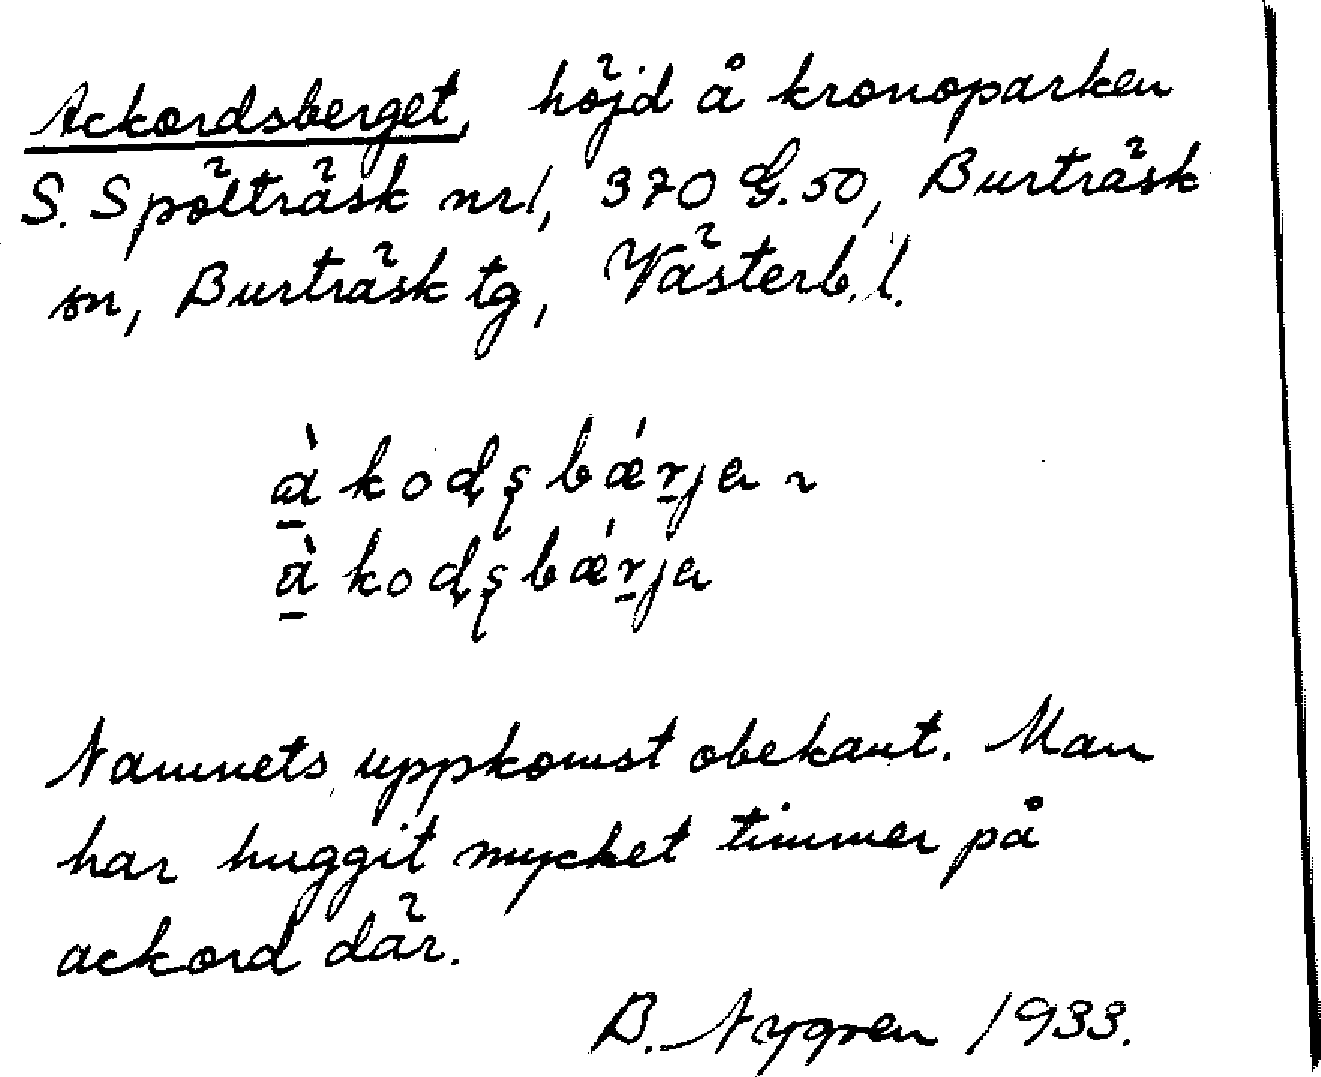 Ackordsberget, höjd å kronoparken
S. Spölträsk nr 1, 370 G. 50, Burträsk
sn, Burträsk tg, Västerb. l.
à̱kodʂbǽṟja ~
à̱kodʂbǽṟja
Namnets uppkomst obekant. Man
har huggit mycket timmer på
ackord där.
B. Nygren 1933.